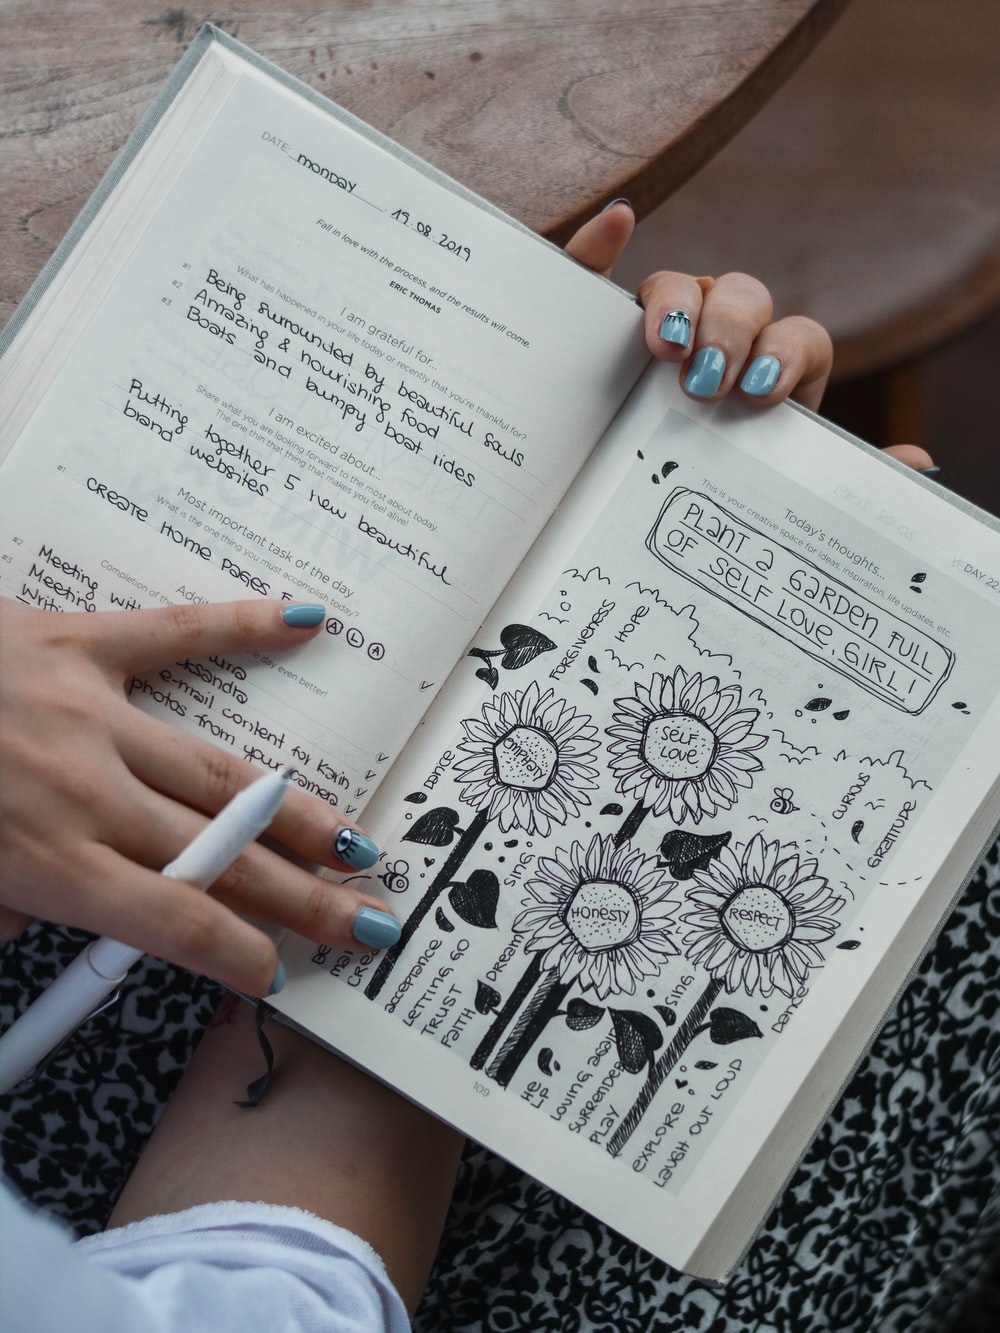 DATE: monday 19.08.2019
Fall in love with the process, and the results will come.
ERIC THOMAS
I am grateful for...
What has happened in your life today or recently that you're thankful for?
#1 Being surrounded by beautiful souls
#2 Amazing & nourishing food
#3 Boats and bumpy boat rides
I am excited about...
Share what you are looking forward to the most about today.
The one thing that thing that makes you feel alive!
Putting together 5 new beautiful
brand websites
Most important task of the day
What is the one thing you must accomplish today?
#1 CREATE HOME PAGES
A L A
Completion of the
day even better!
#2 Meeting
#3 Meeting
e-mail content for Karin
photos from your camera
DAY 22
Today's thoughts...
This is your creative space for ideas, inspiration, life updates, etc.
PLANT a GARDEN FULL
OF SELF LOVE, GIRL!
FORGIVENESS
HOPE
EMPHATY
SELF
LOVE
DANCE
CURIOUS
GRATITUDE
SING
HONESTY
RESPECT
acceptance
LETTING GO
TRUST
FAITH
DREAM
SING
Dance
HE
LP
LOVING again
SURRENDER
PLAY
EXPLORE
LaUGH OUT LOUD
109